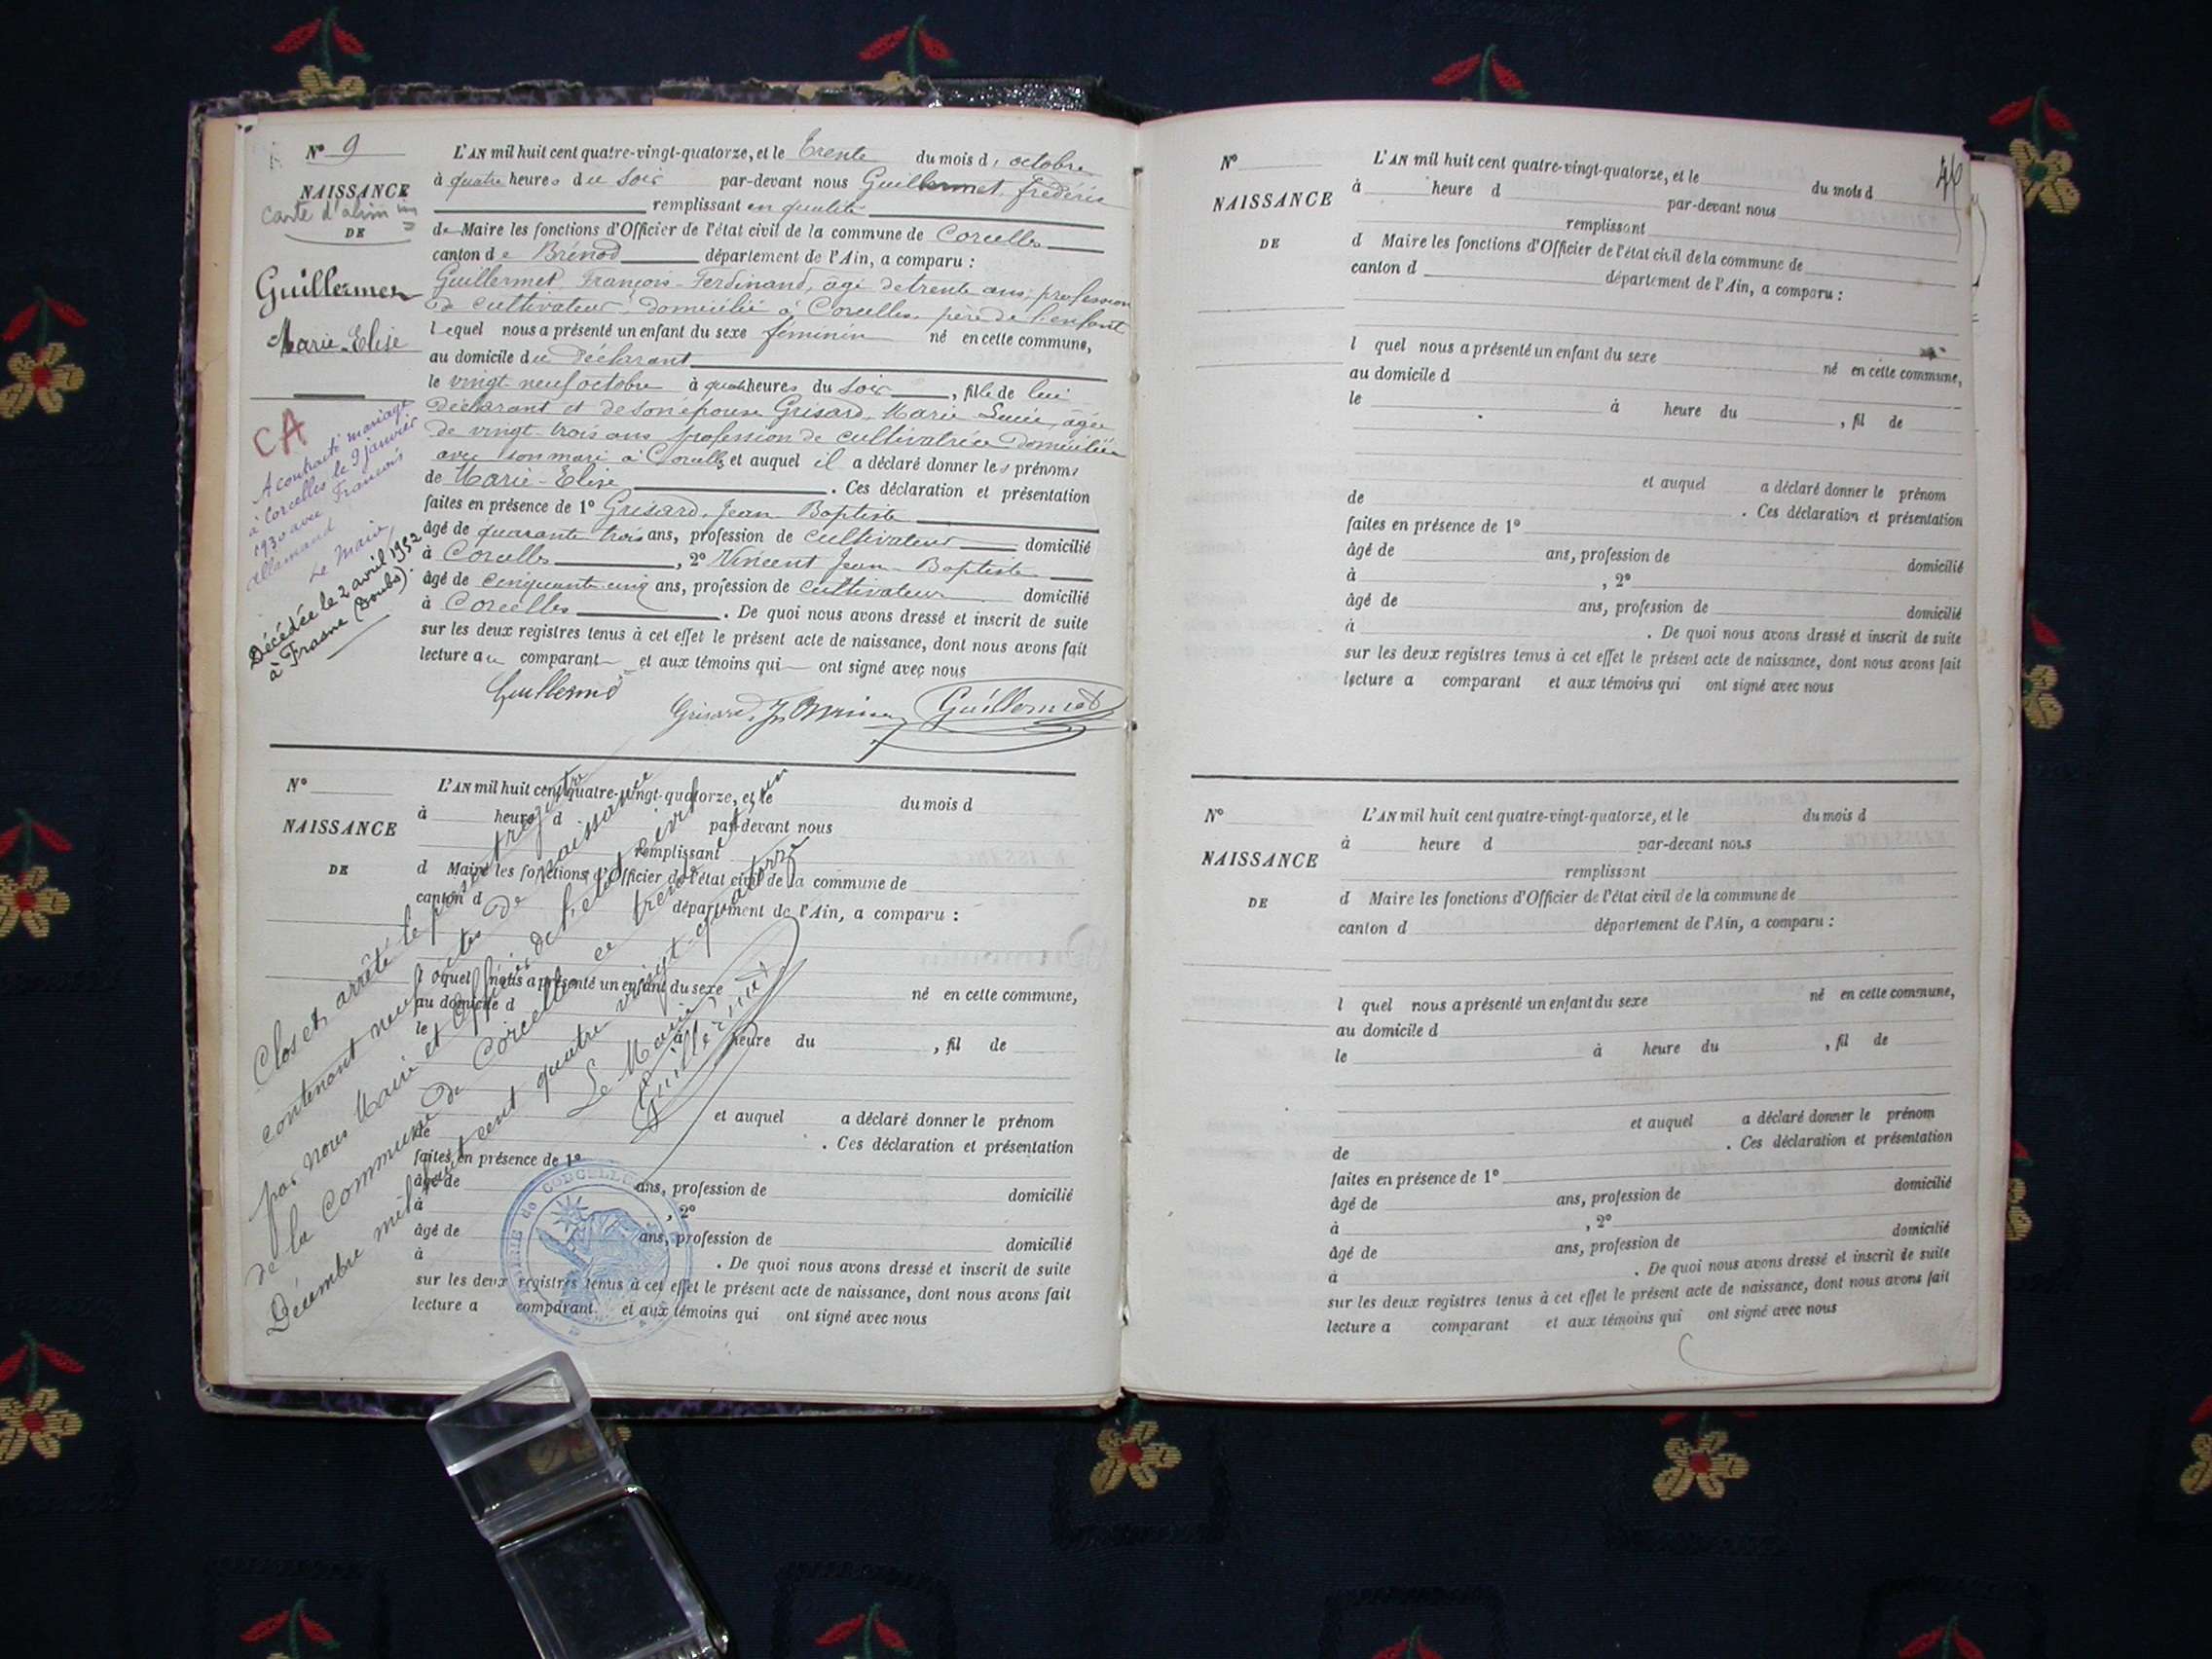 N° 9
NAISSANCE
Carte d'alim
DE
Guillermet
Marie-Elise
CA
A contracté mariage
à Corcelles le 9 janvier
1930 avec François
Allemand
Le Maire,
Décédée le 2 avril 1952
à Frasne (Doubs).
L'AN mil huit cent quatre-vingt-quatorze, et le Trente du mois d' octobre
à quatre heures du soir par-devant nous Guillermet, Frédéric
remplissant en qualité
de Maire les fonctions d'Officier de l'état civil de la commune de Corcelles
canton de Brénod département de l'Ain, a comparu :
Guillermet, François-Ferdinand, âgé de trente ans, profession
de cultivateur, domicilié à Corcelles, père de l'enfant
lequel nous a présenté un enfant du sexe féminin né en cette commune,
au domicile du déclarant
le vingt-neuf octobre à quatre heures du soir, fille de lui
déclarant et de son épouse Grisard, Marie-Lucie, âgée
de vingt-trois ans profession de cultivatrice domiciliée
avec son mari à Corcelles et auquel il a déclaré donner les prénoms
de Marie-Elise . Ces déclaration et présentation
faites en présence de 1° Grisard, Jean-Baptiste
âgé de quarante trois ans, profession de cultivateur domicilié
à Corcelles , 2° Vincent Jean-Baptiste
âgé de cinquante cinq ans, profession de cultivateur domicilié
à Corcelles . De quoi nous avons dressé et inscrit de suite
sur les deux registres tenus à cet effet le présent acte de naissance, dont nous avons fait
lecture au comparant et aux témoins qui ont signé avec nous
Guillermet
Grisard Guillermet
N°
NAISSANCE
DE
L'AN mil huit cent quatre-vingt-quatorze, et le du mois d
à heure d par-devant nous
remplissant
d Maire les fonctions d'Officier de l'état civil de la commune de
canton d département de l'Ain, a comparu :
l equel nous a présenté un enfant du sexe né en cette commune,
au domicile d
le à heure du , fil de
et auquel a déclaré donner le prénom
de . Ces déclaration et présentation
faites en présence de 1°
âgé de ans, profession de domicilié
à , 2°
âgé de ans, profession de domicilié
à . De quoi nous avons dressé et inscrit de suite
sur les deux registres tenus à cet effet le présent acte de naissance, dont nous avons fait
lecture a comparant et aux témoins qui ont signé avec nous
Clos et arrêté le présent registre
contenant neuf actes de naissance
par nous Maire et Officier de l'état civil
de la Commune de Corcelles ce trente et un
Décembre mil huit cent quatre vingt-quatorze
Le Maire
Guillermet
MAIRIE de CORCELLES
46
N°
NAISSANCE
DE
L'AN mil huit cent quatre-vingt-quatorze, et le du mois d
à heure d par-devant nous
remplissant
d Maire les fonctions d'Officier de l'état civil de la commune de
canton d département de l'Ain, a comparu :
l quel nous a présenté un enfant du sexe né en cette commune,
au domicile d
le à heure du , fil de
et auquel a déclaré donner le prénom
de . Ces déclaration et présentation
faites en présence de 1°
âgé de ans, profession de domicilié
à , 2°
âgé de ans, profession de domicilié
à . De quoi nous avons dressé et inscrit de suite
sur les deux registres tenus à cet effet le présent acte de naissance, dont nous avons fait
lecture a comparant et aux témoins qui ont signé avec nous
N°
NAISSANCE
DE
L'AN mil huit cent quatre-vingt-quatorze, et le du mois d
à heure d par-devant nous
remplissant
d Maire les fonctions d'Officier de l'état civil de la commune de
canton d département de l'Ain, a comparu :
l quel nous a présenté un enfant du sexe né en cette commune,
au domicile d
le à heure du , fil de
et auquel a déclaré donner le prénom
de . Ces déclaration et présentation
faites en présence de 1°
âgé de ans, profession de domicilié
à , 2°
âgé de ans, profession de domicilié
à . De quoi nous avons dressé et inscrit de suite
sur les deux registres tenus à cet effet le présent acte de naissance, dont nous avons fait
lecture a comparant et aux témoins qui ont signé avec nous